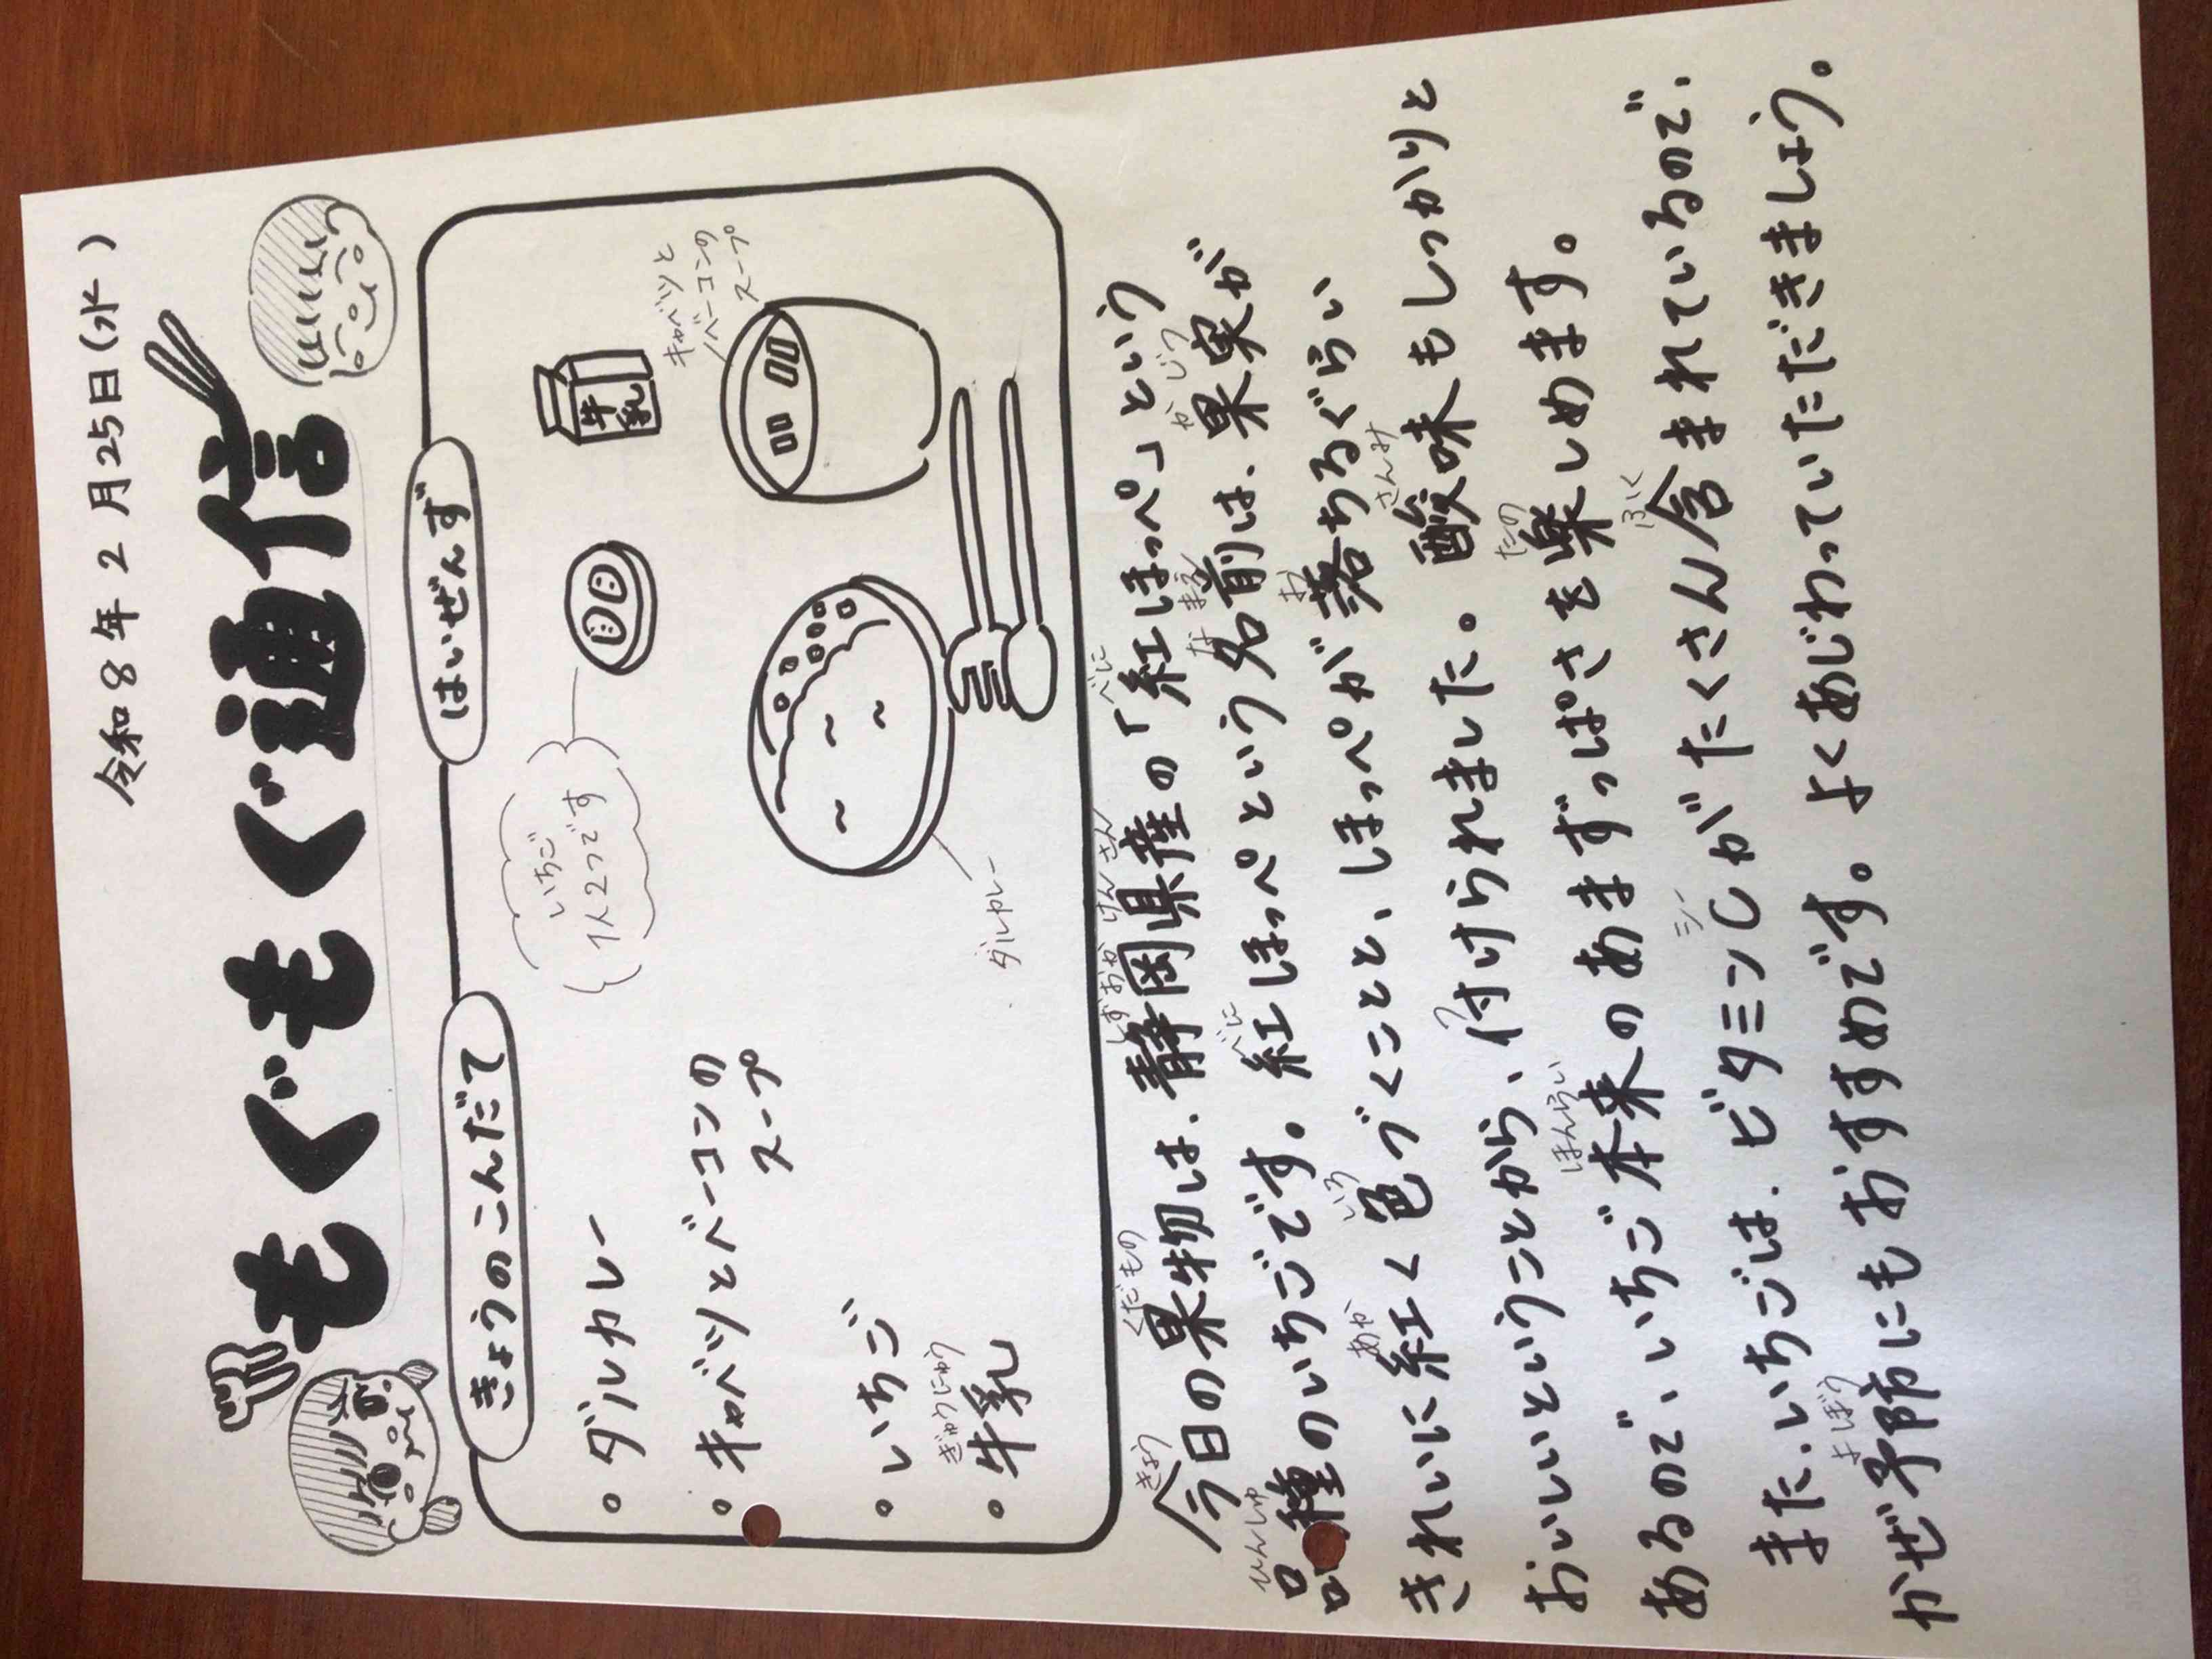 令和8年2月25日(水)
もぐもぐ通信
きょうのこんだて
・ダルカレー
・キャベツとベーコンの
スープ
・いちご
ぎゅうにゅう
・牛乳
はいぜんず
いちご
1人2つです
牛乳
キャベツと
ベーコンの
スープ
ダルカレー
きょう くだもの しずおか けんさん べに
今日の果物は、静岡県産の「紅ほっぺ」という
ひんしゅ べに なまえ かじつ
品種のいちごです。紅ほっぺという名前は、果実が
あか いろ お
きれいに紅く色づくことと、ほっぺが落ちるぐらい
つ さんみ
おいしいということから、付けられました。酸味もしっかりと
ほんらい たの
あるので、いちご本来のあまずっぱさを楽しめます。
シー ふく
また、いちごは、ビタミンCがたくさん含まれているので、
よぼう
かぜ予防にもおすすめです。よくあじわっていただきましょう。